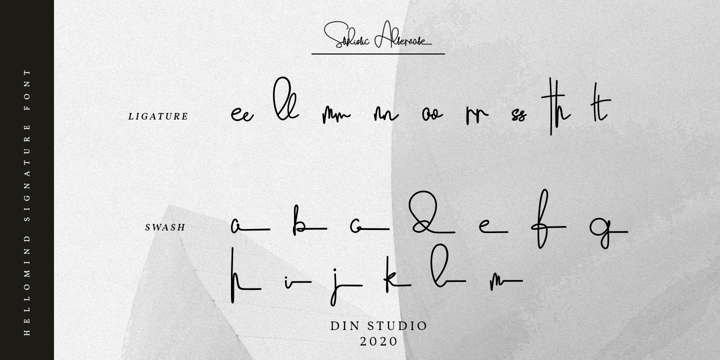 Stylistic Alternate
LIGATURE ee ll mm nn oo rr ss th tt
SWASH a b c d e f g
h i j k l m
HELLOMIND SIGNATURE FONT
DIN STUDIO
2020